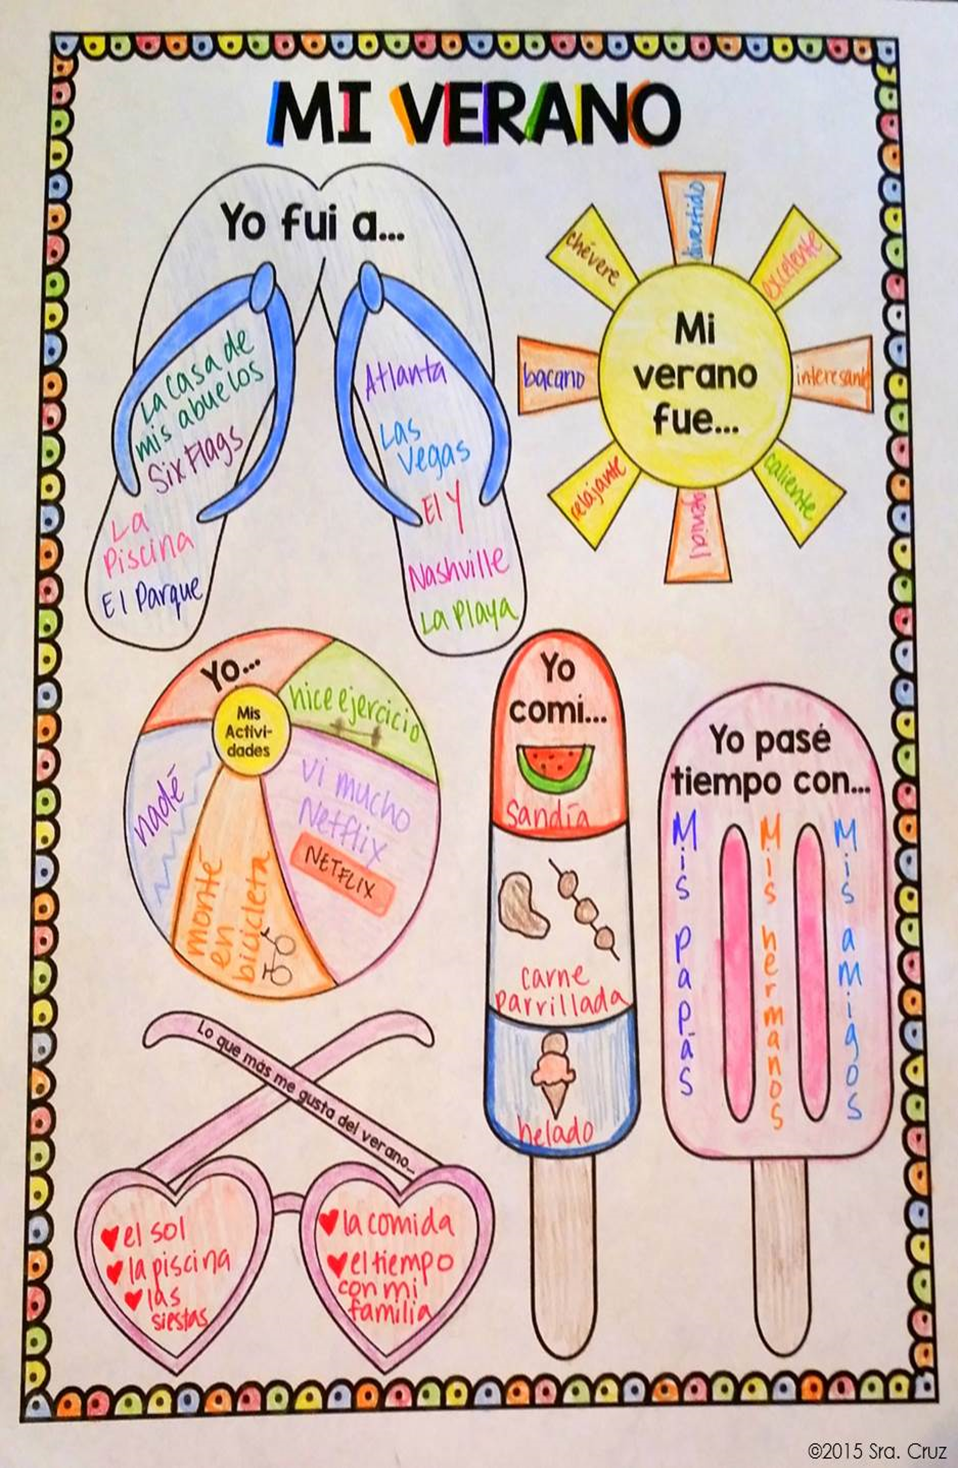 MI VERANO
Yo fui a...
La Casa de
mis abuelos
Six Flags
La
Piscina
El Parque
Atlanta
Las
Vegas
El Y
Nashville
La Playa
Mi
verano
fue...
divertido
excelente
interesante
caliente
genial
relajante
bacano
chévere
Yo...
Mis
Activi-
dades
hice ejercicio
vi mucho
Netflix
NETFLIX
monté
en
bicicleta
nadé
Yo
comi...
Sandía
carne
parrillada
helado
Yo pasé
tiempo con...
Mis papás
Mis hermanos
Mis amigos
Lo que más me gusta del verano...
el sol
la piscina
las
siestas
la comida
el tiempo
con mi
familia
©2015 Sra. Cruz